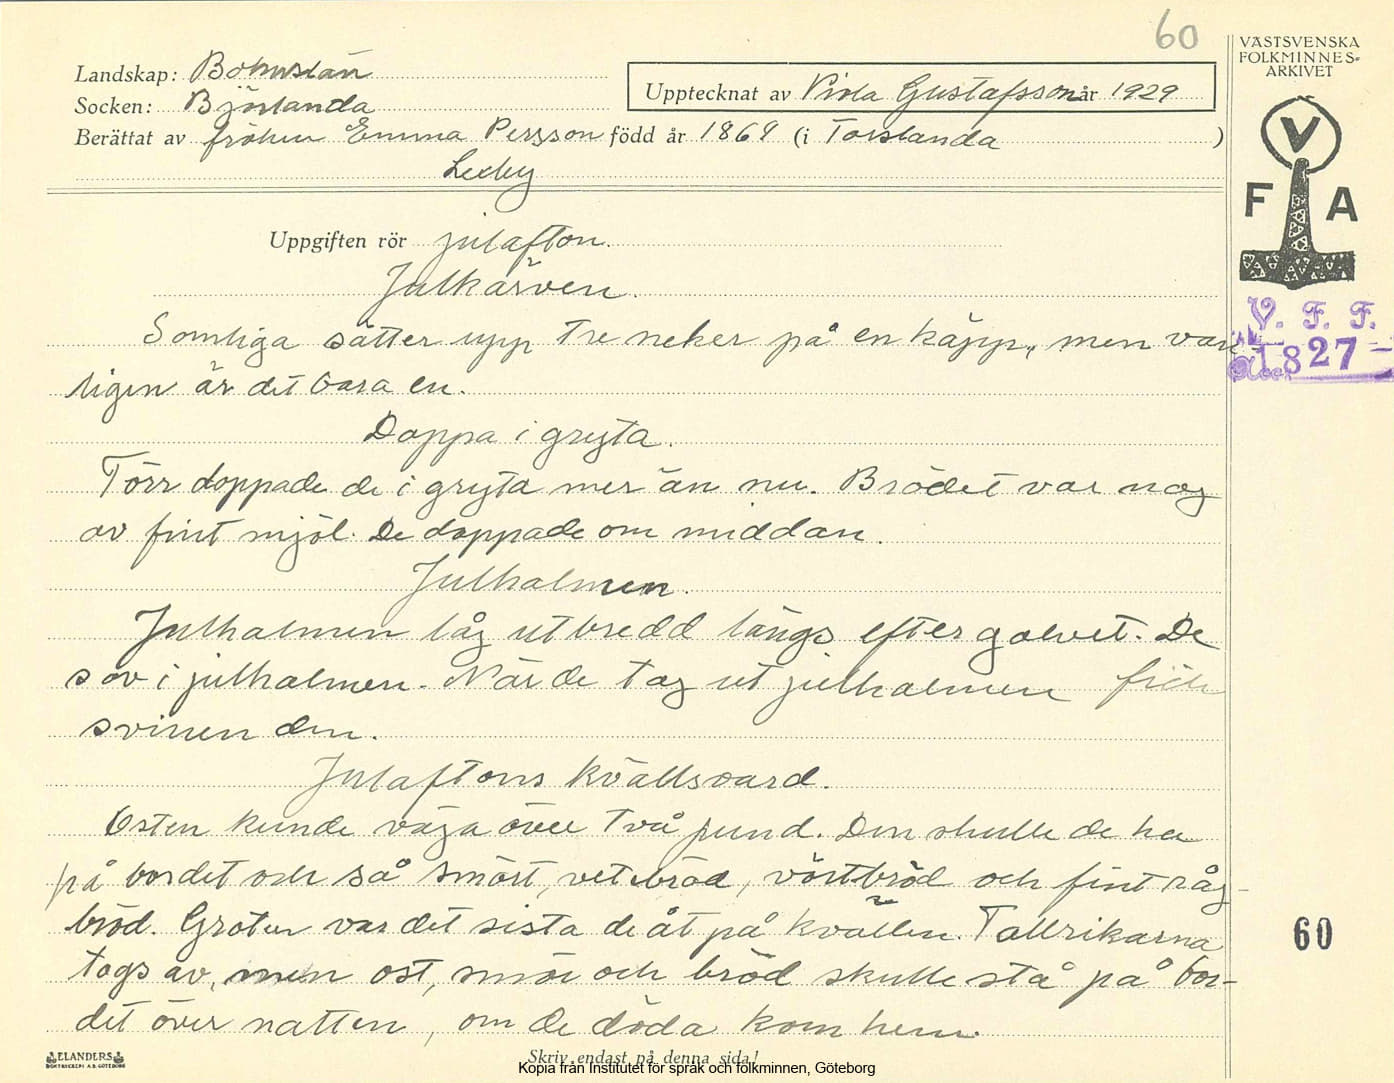 60
VÄSTSVENSKA
FOLKMINNES-
ARKIVET
Landskap: Bohuslän
Socken: Björlanda
Upptecknat av Viola Gustafsson år 1929
Berättat av fröken Emma Persson född år 1869 (i Torslanda )
V
F A
Uppgiften rör julafton.
Julkärven.
V. F. F.
Somliga sätter upp tre neker på en käpp, men van
Acc. 1827 -
ligen är det bara en.
Doppa i gryta.
Förr doppade de i gryta mer än nu. Brödet var nog
av fint mjöl. De doppade om middan.
Julhalmen.
Julhalmen låg utbredd längs efter golvet. De
sov i julhalmen. När de tog ut julhalmen fick
svinen den.
Julaftons kvällsvard.
Osten kunde väga över två pund. Den skulle de ha
på bordet och så smört, vetebröd, vörtbröd och fint råg-
bröd. Gröten var det sista de åt på kvällen. Tallrikarna
60
togs av, men ost, smör och bröd skulle stå på bor-
det över natten, om de döda kom hem.
ELANDERS
BOKTRYCKERI A.B. GÖTEBORG
Skriv endast på denna sida!
Kopia från Institutet för språk och folkminnen, Göteborg